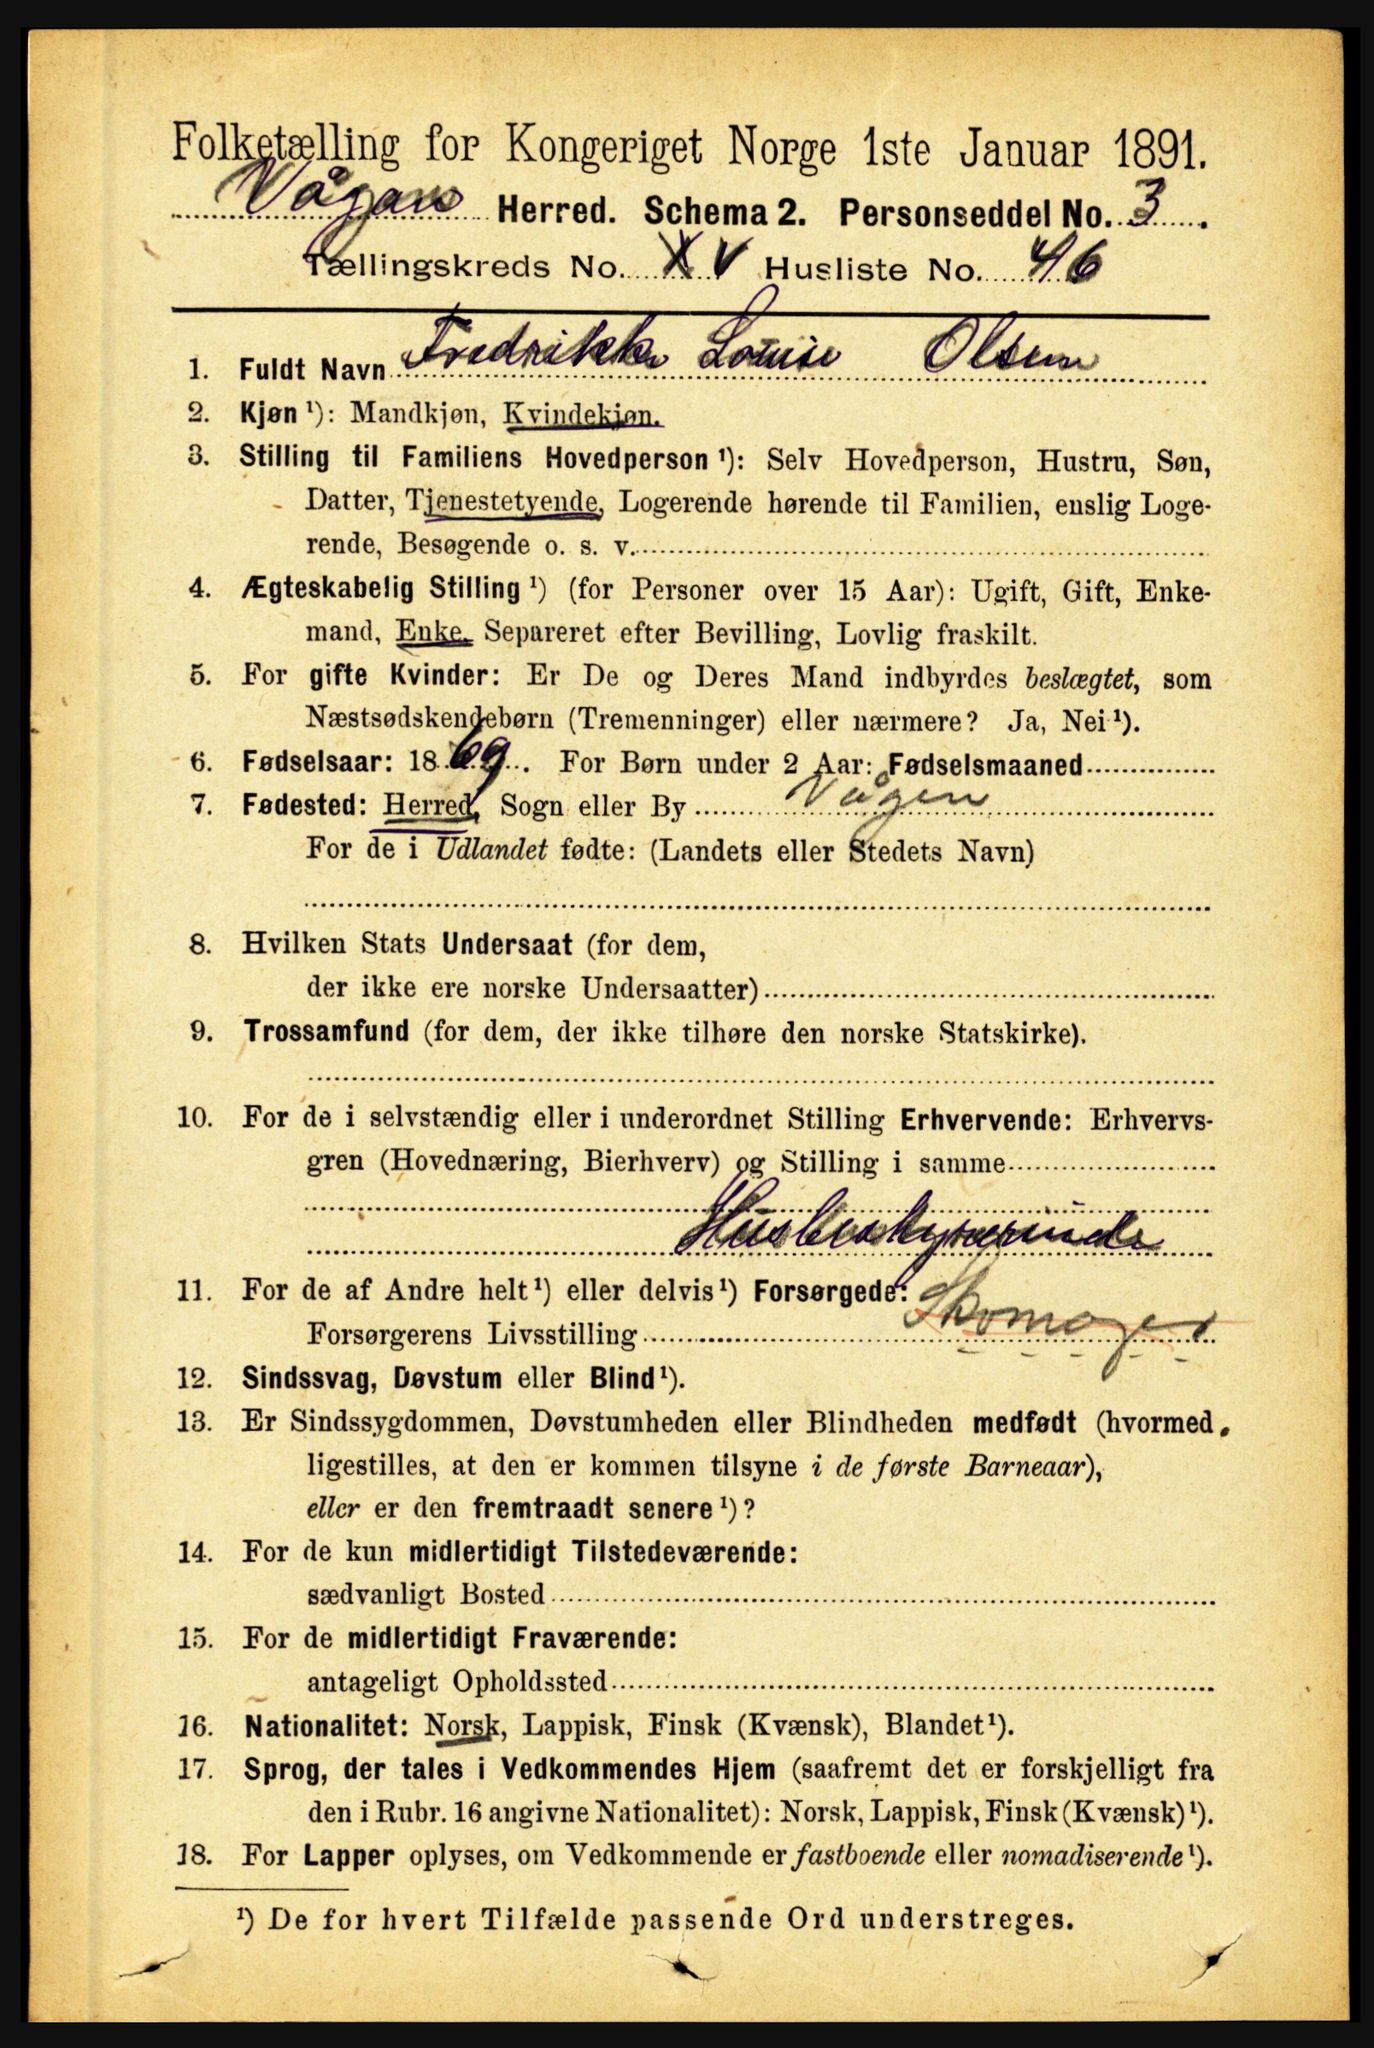 Folketælling for Kongeriget Norge 1ste Januar 1891.
Vågan Herred. Schema 2. Personseddel No. 3.
Tællingskreds No. XV Husliste No. 46
1. Fuldt Navn Fredrikke Louise Olsen
2. Kjøn ¹): Mandkjøn, Kvindekjøn.
3. Stilling til Familiens Hovedperson ¹): Selv Hovedperson, Hustru, Søn,
Datter, Tjenestetyende, Logerende hørende til Familien, enslig Loge-
rende, Besøgende o. s. v.
4. Ægteskabelig Stilling ¹) (for Personer over 15 Aar): Ugift, Gift, Enke-
mand, Enke, Separeret efter Bevilling, Lovlig fraskilt.
5. For gifte Kvinder: Er De og Deres Mand indbyrdes beslægtet, som
Næstsødskendebørn (Tremenninger) eller nærmere? Ja, Nei ¹).
6. Fødselsaar: 1869. For Børn under 2 Aar: Fødselsmaaned
7. Fødested: Herred, Sogn eller By Vågen
For de i Udlandet fødte: (Landets eller Stedets Navn)
8. Hvilken Stats Undersaat (for dem,
der ikke ere norske Undersaatter)
9. Trossamfund (for dem, der ikke tilhøre den norske Statskirke).
10. For de i selvstændig eller i underordnet Stilling Erhvervende: Erhvervs-
gren (Hovednæring, Bierhverv) og Stilling i samme
Husbestyrerinde
11. For de af Andre helt ¹) eller delvis ¹) Forsørgede:
Forsørgerens Livsstilling Skomager
12. Sindssvag, Døvstum eller Blind ¹).
13. Er Sindssygdommen, Døvstumheden eller Blindheden medfødt (hvormed
ligestilles, at den er kommen tilsyne i de første Barneaar),
eller er den fremtraadt senere ¹)?
14. For de kun midlertidigt Tilstedeværende:
sædvanligt Bosted
15. For de midlertidigt Fraværende:
antageligt Opholdssted
16. Nationalitet: Norsk, Lappisk, Finsk (Kvænsk), Blandet ¹).
17. Sprog, der tales i Vedkommendes Hjem (saafremt det er forskjelligt fra
den i Rubr. 16 angivne Nationalitet): Norsk, Lappisk, Finsk (Kvænsk) ¹).
18. For Lapper oplyses, om Vedkommende er fastboende eller nomadiserende ¹).
¹) De for hvert Tilfælde passende Ord understreges.